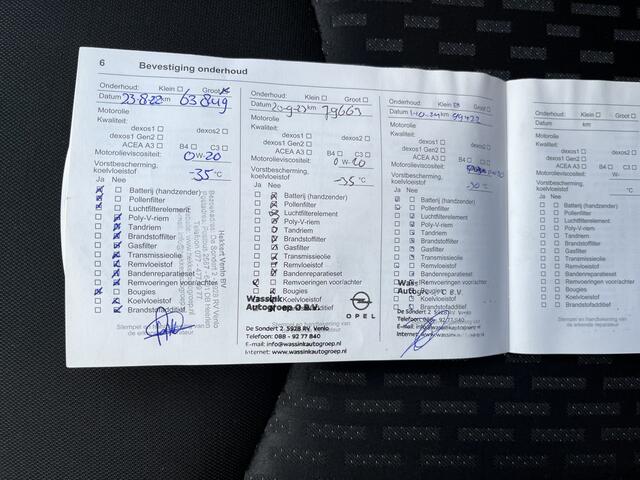 6 Bevestiging onderhoud
Onderhoud: Klein Groot
Datum 23-8-22 km 63849
Motorolie
Kwaliteit:
dexos1 dexos2
dexos1 Gen2
ACEA A3 B4 C3
Motorolieviscositeit: 0 W-20
Vorstbescherming,
koelvloeistof -35 °C
Ja Nee
Batterij (handzender)
Pollenfilter
Luchtfilterelement
Poly-V-riem
Tandriem
Brandstoffilter
Gasfilter
Transmissieolie
Remvloeistof
Bandenreparatieset
Remvoeringen voor/achter
Bougies
Koelvloeistof
Brandstofadditief
Stempel en
de erkende reparateur
Onderhoud: Klein Groot
Datum 20-9-23 km 79663
Motorolie
Kwaliteit:
dexos1 dexos2
dexos1 Gen2
ACEA A3 B4 C3
Motorolieviscositeit: 0 W-20
Vorstbescherming,
koelvloeistof -35 °C
Ja Nee
Batterij (handzender)
Pollenfilter
Luchtfilterelement
Poly-V-riem
Tandriem
Brandstoffilter
Gasfilter
Transmissieolie
Remvloeistof
Bandenreparatieset
Remvoeringen voor/achter
Bougies
Koelvloeistof
Wassink
Autogroep O B.V.
OPEL
De Sondert 2 5928 RV Venlo
Telefoon: 088 - 92 77 840
E-mail: info@wassinkautogroep.nl
Internet: www.wassinkautogroep.nl
Onderhoud: Klein Groot
Datum km
Motorolie
Kwaliteit:
dexos1 dexos2
dexos1 Gen2
ACEA A3 B4 C3
Motorolieviscositeit:
Vorstbescherming,
koelvloeistof -30 °C
Ja Nee
Batterij (handzender)
Pollenfilter
Luchtfilterelement
Poly-V-riem
Tandriem
Brandstoffilter
Gasfilter
Transmissieolie
Remvloeistof
Bandenreparatieset
Remvoeringen voor/achter
Bougies
Koelvloeistof
Brandstofadditief
De Sondert 2 5928 RV Venlo
Telefoon: 088 - 92 77 840
E-mail: info@wassinkautogroep.nl
Internet: www.wassinkautogroep.nl
Onderhoud: Klein Groot
Datum km
Motorolie
Kwaliteit:
dexos1 dexos2
dexos1 Gen2
ACEA A3 B4 C3
Motorolieviscositeit: W-
Vorstbescherming,
koelvloeistof °C
Ja Nee
Batterij (handzender)
Pollenfilter
Luchtfilterelement
Poly-V-riem
Tandriem
Brandstoffilter
Gasfilter
Transmissieolie
Remvloeistof
Bandenreparatieset
Remvoeringen voor/achter
Bougies
Koelvloeistof
Brandstofadditief
Stempel en handtekening van
de erkende reparateur